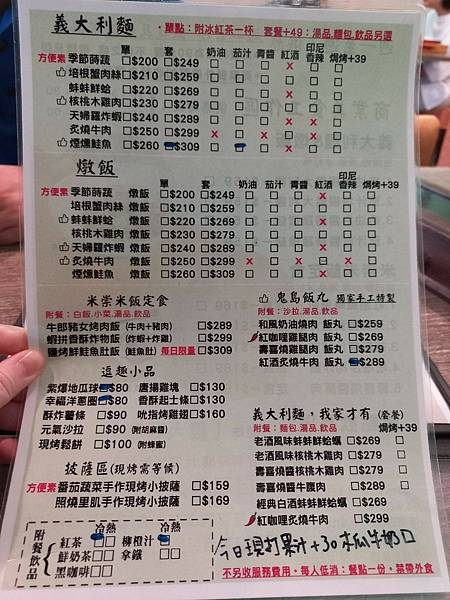 義大利麵 ・單點:附冰紅茶一杯 套餐+49:湯品,麵包,飲品另選
單 套 奶油 茄汁 青醬 紅酒 印尼香辣 焗烤+39
方便素 季節蒔蔬 □$200 □$249 □ □ □ x □ □
培根蟹肉絲 □$210 □$259 □ □ □ □ □ □
蚌蚌鮮蛤 □$220 □$269 □ □ □ □ □ □
核桃木雞肉 □$230 □$279 □ □ □ □ □ □
天婦羅炸蝦 □$240 □$289 □ □ □ x x □
炙燒牛肉 □$250 □$299 x □ x □ □ □
煙燻鮭魚 □$260 □$309 □ □ □ x x □
燉飯 單 套 奶油 茄汁 青醬 紅酒 印尼香辣 焗烤+39
方便素 季節蒔蔬 燉飯 □$200 □$249 □ □ □ x □ □
培根蟹肉絲 燉飯 □$210 □$259 □ □ □ □ □ □
蚌蚌鮮蛤 燉飯 □$220 □$269 □ □ □ x □ □
核桃木雞肉 燉飯 □$230 □$279 □ □ □ □ □ □
天婦羅炸蝦 燉飯 □$240 □$289 □ □ □ x □ □
炙燒牛肉 燉飯 □$250 □$299 x □ x □ x □
煙燻鮭魚 燉飯 □$260 □$309 □ □ □ x □ □
米崇米飯定食
附餐:白飯,小菜,湯品,飲品
牛郎豬女烤肉飯 (牛肉+豬肉) □$289
蝦拼香酥炸物飯 (炸蝦+炸雞) □$299
鹽烤鮮鮭魚肚飯 (鮭魚肚) 每日限量 □$309
鬼島飯丸 獨家手工特製
附餐:沙拉,湯品,飲品
和風奶油燒肉 飯丸 □$259
紅咖哩雞腿肉 飯丸 □$269
壽喜燒雞腿肉 飯丸 □$279
紅酒炙燒牛肉 飯丸 □$289
逗趣小品
紫爆地瓜球 □$80 唐揚雞塊 □$130
幸福洋蔥圈 □$80 香酥起士條 □$130
酥炸薯條 □$90 吮指烤雞翅 □$160
元氣沙拉 □$90 (附胡麻醬)
現烤鬆餅 □$100 (附蜂蜜)
披薩區(現烤需等候)
方便素 番茄蔬菜手作現烤小披薩 □$159
照燒里肌手作現烤小披薩 □$169
義大利麵,我家才有 (套餐)
附餐:麵包,湯品,飲品 焗烤+39
老酒風味蚌蚌鮮蛤蠣 □$269 □
老酒風味核桃木雞肉 □$279 □
壽喜燒醬核桃木雞肉 □$279 □
壽喜燒醬牛腹肉 □$289 □
經典白酒蚌蚌鮮蛤蠣 □$269
紅咖哩炙燒牛肉 □$299
附餐飲品
冷 熱 冷 熱
紅茶 □ □ 柳橙汁 □
鮮奶茶 □ □ 拿鐵 □ □
黑咖啡 □ □
今日現打果汁+30 木瓜牛奶□
不另收服務費用。每人低消:餐點一份。禁帶外食